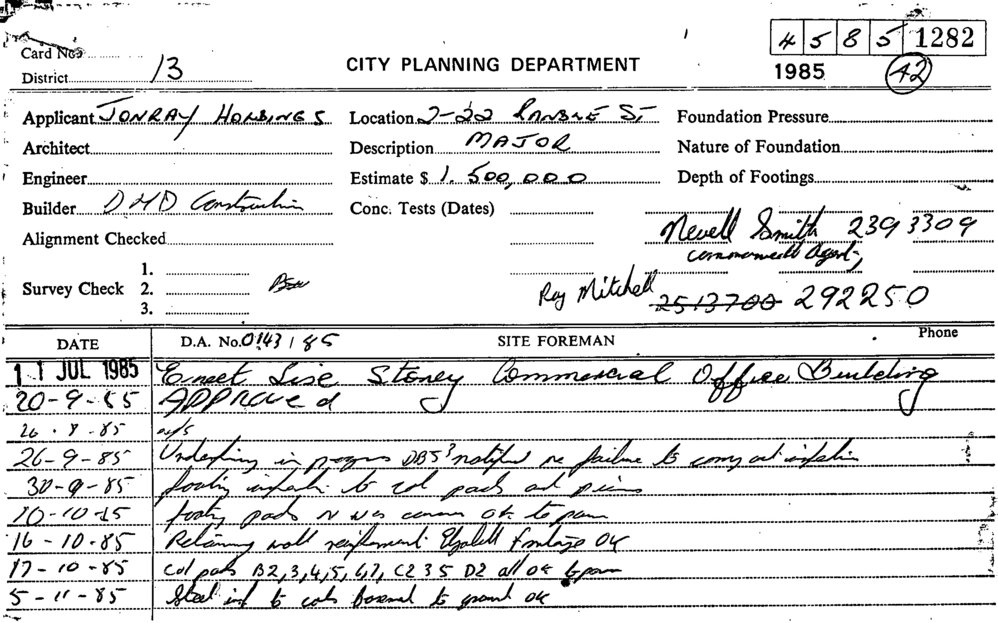 4 5 8 5 1282
Card No
District 13
CITY PLANNING DEPARTMENT
1985 42
Applicant JONRAY HOLDINGS
Location 2-22 ST
Foundation Pressure
Architect
Description MAJOR
Nature of Foundation
Engineer
Estimate $ 1.500,000
Depth of Footings
Builder DHD Construction
Conc. Tests (Dates)
Nevell Smith 2393309
Alignment Checked
Commonwealth Agent
1.
Survey Check 2.
Ray Mitchell 2513700 292250
3.
DATE D.A. No. 0143/85 SITE FOREMAN Phone
11 JUL 1985 Erect Stoney Commercial Office Building
20-9-85 APPROVED
26.8.85 n/s
26-9-85 in DBS notified re failure to carry out
30-9-85 footing to col pads and piers
10-10-85 footing pads ok to pour
16-10-85 Retaining wall reinforcement Elizabeth frontage OK
17-10-85 Col pads B2,3,4,5,6,7, C2 3 5 D2 all OK to pour
5-11-85 Steel to cols to ground OK